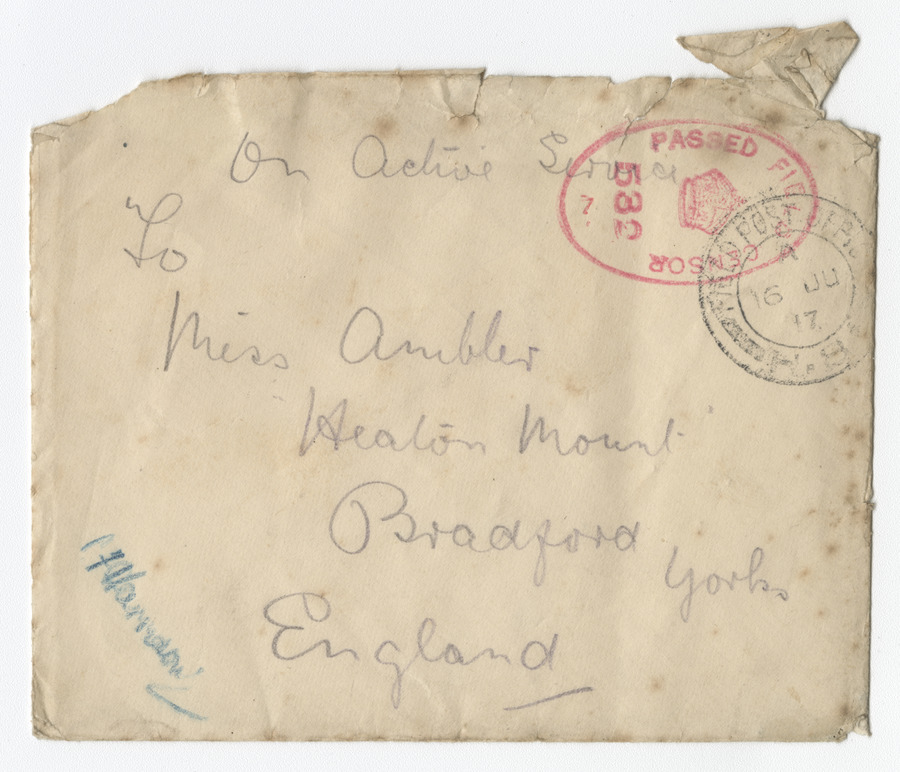 On Active Service
PASSED FIELD CENSOR
532
7.
"To
FIELD POST OFFICE
A
16 JU
17
H.8
Miss Ambler
"Heaton Mount"
Bradford
Yorks
England